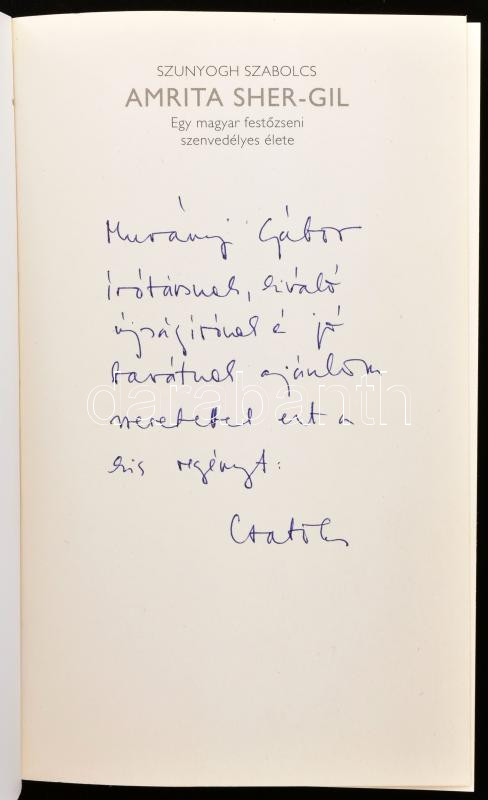 SZUNYOGH SZABOLCS
AMRITA SHER-GIL
Egy magyar festőzseni
szenvedélyes élete
Murányi Gábor
írótársnak, kiváló
újságírónak é jó
barátnak ajánlom
szeretettel ezt a
kis regényt:
darabanth